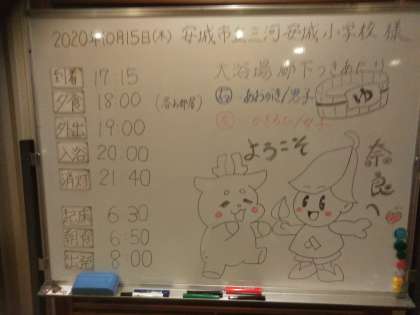 2020年10月15日(木) 安城市立三河安城小学校 様
到着 17:15
夕食 18:00
外出 19:00
入浴 20:00
消灯 21:40
起床 6:30
朝食 6:50
出発 8:00
大浴場 廊下つきあたり
男子
ゆ
ようこそ
奈良へ